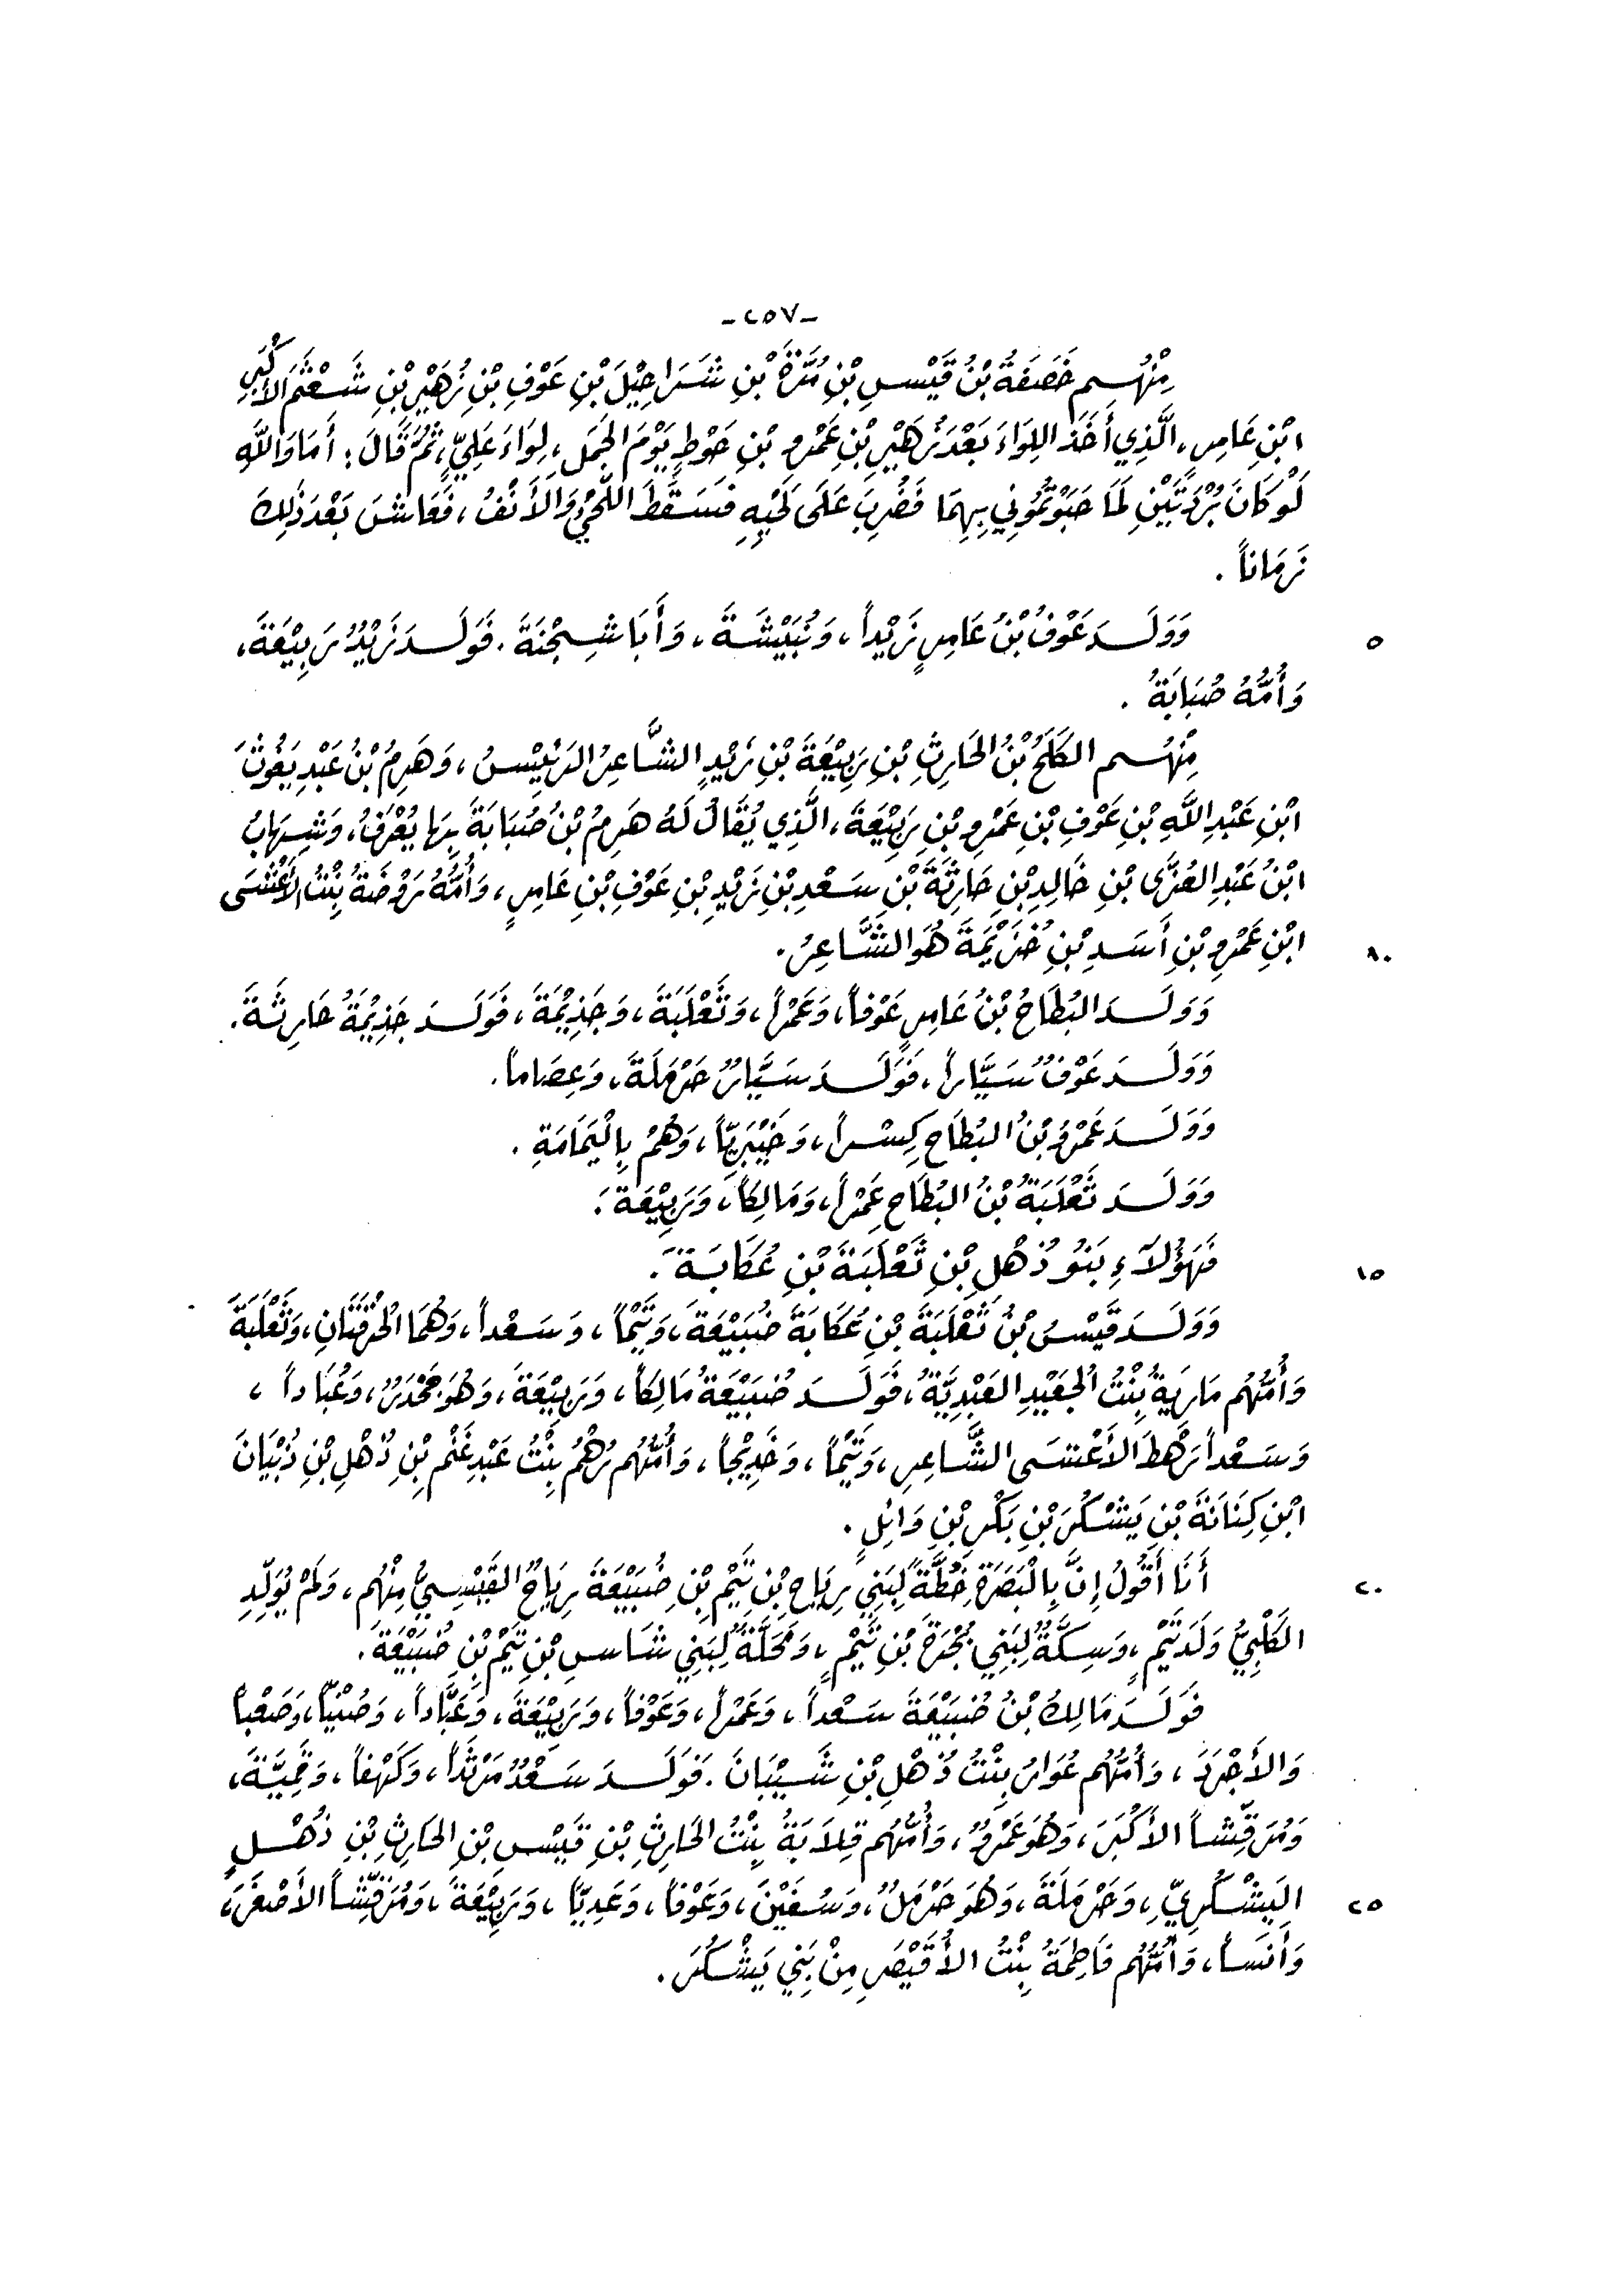 -٢٥٧-
مِنْهُم خَصَفَةُ بْنُ قَيْسِ بْنِ مُرَّةَ بْنِ شَرَاحِيْلَ بْنِ عَوْفِ بْنِ زُهَيْرِ بْنِ شَعْثَمَ الأَكْبَرِ
ابْنِ عَامِرٍ، الَّذِي أَخَذَ اللِوَاءَ بَعْدَ زُهَيْرِ بْنِ عَمْرِو بْنِ حَوْطٍ يَوْمَ الجَمَلِ، لِوَاءَ عَلِيٍّ، ثُمَّ قَالَ: أَمَا وَاللَّهِ
لَوْ كَانَ بُرْدَتَيْنِ لَمَا حَبَوْتُمُونِي بِهِمَا فَضُرِبَ عَلَى لَحْيِهِ فَسَقَطَ اللَّحْيُ وَالأَنْفُ، فَعَاشَ بَعْدَ ذَلِكَ
زَمَاناً .
وَوَلَدَ عَوْفُ بْنُ عَامِرٍ زَيْداً، وَنُبَيْشَةَ، وَأَبَا شِجْنَةَ. فَوَلَدَ زَيْدُ رَبِيْعَةَ، ٥
وَأُمُّهُ صُبَابَةُ .
مِنْهُم الكَلَحُ بْنُ الحَارِثِ بْنِ رَبِيْعَةَ بْنِ زَيْدٍ الشَّاعِرُ الرَئِيْسُ، وَهَرِمُ بْنُ عَبْدِ يَغُوثَ
ابْنِ عَبْدِ اللَّهِ بْنِ عَوْفِ بْنِ عَمْرِو بْنِ رَبِيْعَةَ، الَّذِي يُقَالُ لَهُ هَرِمُ بْنُ صُبَابَةَ بِهَا يُعْرَفُ، وَشِهَابُ
ابْنُ عَبْدِ العُزَّى بْنِ خَالِدِ بْنِ حَارِثَةَ بْنِ سَعْدِ بْنِ زَيْدِ بْنِ عَوْفِ بْنِ عَامِرٍ، وَأُمُّهُ رَوْضَةُ بِنْتُ الأَعْشَى
ابْنِ عَمْرِو بْنِ أَسَدِ بْنِ خُزَيْمَةَ هُوَ الشَّاعِرُ. ١٠
وَوَلَدَ البُطَاحُ بْنُ عَامِرٍ عَوْفاً، وَعَمْراً، وَثَعْلَبَةَ، وَجَذِيْمَةَ، فَوَلَدَ جَذِيْمَةُ حَارِثَةَ.
وَوَلَدَ عَوْفُ سَيَّاراً، فَوَلَدَ سَيَّارُ حَرْمَلَةَ، وَعِصَاماً.
وَوَلَدَ عَمْرُو بْنُ البُطَاحِ كِسْراً، وَخَيْبَرِيّاً، وَهُمْ بِالْيَمَامَةِ .
وَوَلَدَ ثَعْلَبَةُ بْنُ البُطَاحِ عَمْراً، وَمَالِكاً، وَرَبِيْعَةَ.
فَهَؤُلاَءِ بَنُو ذُهْلِ بْنِ ثَعْلَبَةَ بْنِ عُكَابَةَ. ١٥
وَوَلَدَ قَيْسُ بْنُ ثَعْلَبَةَ بْنِ عُكَابَةَ ضُبَيْعَةَ، وَتَيْماً، وَسَعْداً، وَهُمَا الحُرْقَتَانِ، وَثَعْلَبَةَ
وَأُمُّهُم مَارِيَةُ بِنْتُ الجُعَيْدِ العَبْدِيَّةُ، فَوَلَدَ ضُبَيْعَةُ مَالِكاً، وَرَبِيْعَةَ، وَهُوَ جَحْدَرُ، وَعُبَاداً،
وَسَعْداً رَهْطَ الأَعْشَى الشَّاعِرِ، وَتَيْماً، وَخَدِيْجاً، وَأُمُّهُم رُهْمُ بِنْتُ عَبْدِ غَنْمِ بْنِ ذُهْلِ بْنِ ذُبْيَانَ
ابْنِ كِنَانَةَ بْنِ يَشْكُرَ بْنِ بَكْرِ بْنِ وَائِلٍ .
أَنَا أَقُولُ إِنَّ بِالْبَصَرَةِ خُطَّةً لِبَنِي رِيَاحِ بْنِ تَيْمِ بْنِ ضُبَيْعَةَ رِيَاحُ القَيْسِيُّ مِنْهُم، وَلَمْ يُوَلِّدِ ٢٠
الكَلْبِيُّ وَلَدَ تَيْمٍ، وَسِكَّةٌ لِبَنِي بُجْرَةَ بْنِ تَيْمٍ، وَمَحَلَّةٌ لِبَنِي شَاسِ بْنِ تَيْمِ بْنِ ضُبَيْعَةَ.
فَوَلَدَ مَالِكُ بْنُ ضُبَيْعَةَ سَعْداً، وَعَمْراً، وَعَوْفاً، وَرَبِيْعَةَ، وَعَبَّاداً، وَضُنِّيّاً، وَصَعْباً
وَالأَجْرَدَ، وَأُمُّهُم عُوَارُ بِنْتُ ذُهْلِ بْنِ شَيْبَانَ. فَوَلَدَ سَعْدُ مَرْثَداً، وَكَهْفاً، وَقَمِيَّةَ،
وَمُرَقِّشاً الأَكْبَرَ، وَهُوَ عَمْرُو، وَأُمُّهُم قِلاَبَةُ بِنْتُ الحَارِثِ بْنِ قَيْسِ بْنِ الحَارِثِ بْنِ ذُهْلٍ
اليَشْكُرِيِّ، وَحَرْمَلَةَ، وَهُوَ حَرْمَلُ، وَسُفَيْنَ، وَعَوْفاً، وَعَدِيّاً، وَرَبِيْعَةَ، وَمُرَقِّشاً الأَصْغَرَ، ٢٥
وَأَنَساً، وَأُمُّهُم فَاطِمَةُ بِنْتُ الأُقَيْصَرِ مِنْ بَنِي يَشْكُرَ.